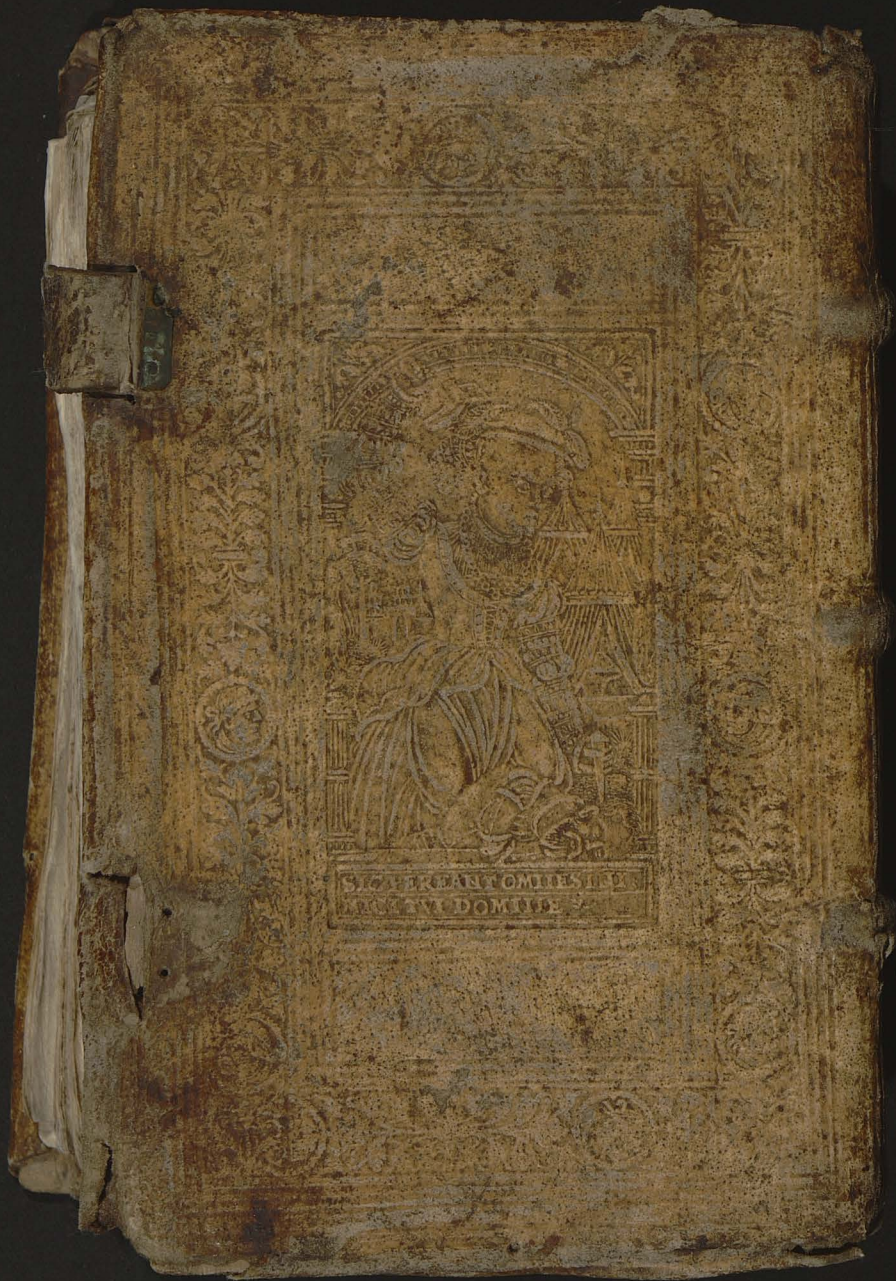 SIC PEREANT OMNES INI
MICI TVI DOMINE